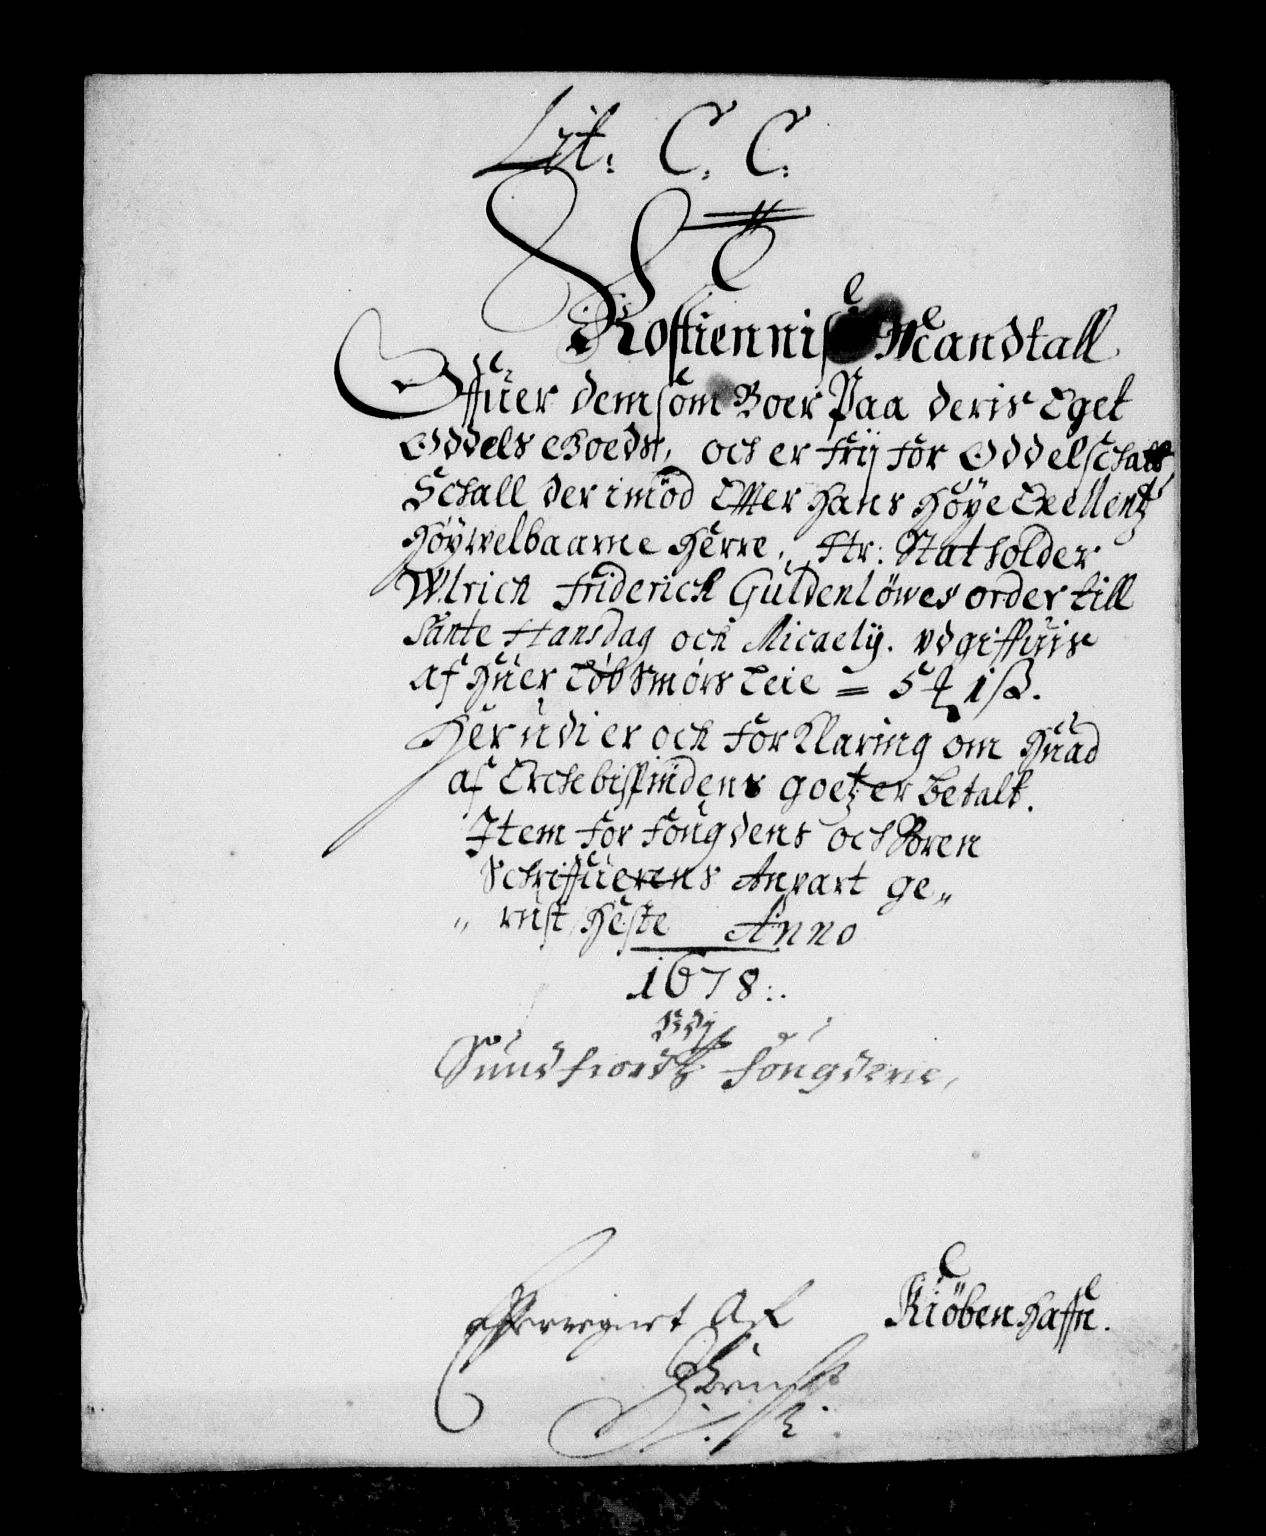 Lit: C. C.
Rostiennis Mandtall
Offuer dem som Boer Paa deris Eget
Oddels Goeds, och er frij for Oddelschatt
Schall der imod Effter Hans Höye Exellentz
Höywelbaarne Herre, Hr: Statholder
Wlrich Friderich Güldenlöwes order till
Sante Hansdag och Micaelij. vdgiffuis
af Huer Löb Smörs Leie = 5 ₰ 1 ß.
Her udi er och forklaring om Huad
af Erchebispindens goetz er betalt.
Item for fougdens och Soren
Schriffuerens Anpart ge„
„ rust Heste Anno
1678:.
Vdj
Sundfiords fougderie,
Kiöbenhaffn.
Effterregnet Af